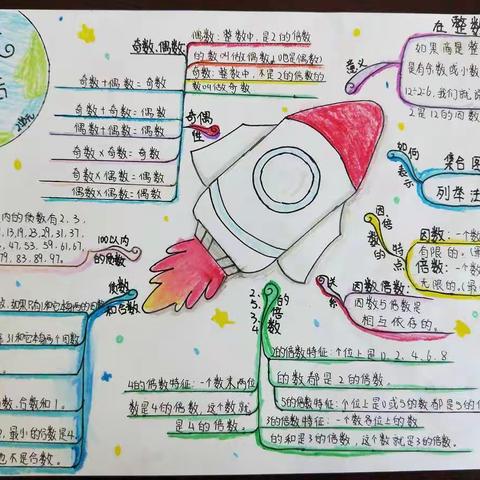 奇数、偶数:
偶数:整数中,是2的倍数
的数叫做偶数(0也是偶数)
奇数:整数中,不是2的倍数的
数叫做奇数
奇数+偶数=奇数
奇数+奇数=偶数
偶数+偶数=偶数
奇数×奇数=奇数
奇数×偶数=偶数
偶数×偶数=偶数
奇偶性
在整数
意义
如果商是整
是有余数或小数
12÷2=6,我们就说
2是12的因数
如何表示
集合图
列举法
因、倍数的特点
因数:一个数
有限的。
倍数:一个数
无限的。
关系
因数倍数:
因数与倍数是
相互依存的。
100以内的质数
内的质数有2、3、
13、19、23、29、31、37、
47、53、59、61、67、
79、83、89、97。
质数和合数
如果只有1和它本身两个因数
合数和1。
最小的合数是4
也不是合数。
2、5、3、4的倍数
2的倍数特征:个位上是0、2、4、6、8
的数都是2的倍数。
5的倍数特征:个位上是0或5的数都是5的倍
3的倍数特征:一个数各位上的数
的和是3的倍数,这个数就是3的倍数。
4的倍数特征:一个数末两位
数是4的倍数,这个数就
是4的倍数。